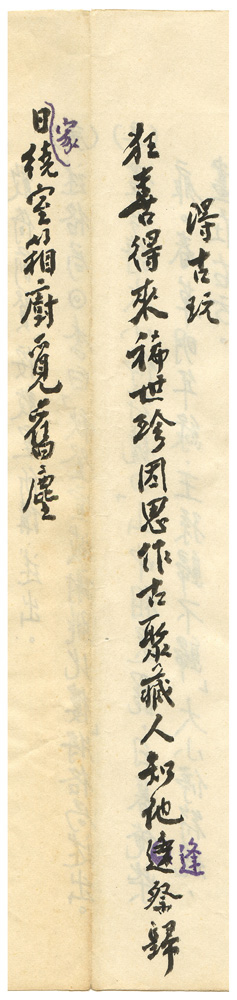 得古玩
狂喜得來稀世珍因思作古聚藏人知他逢祭歸
家日繞室箱廚覓舊塵